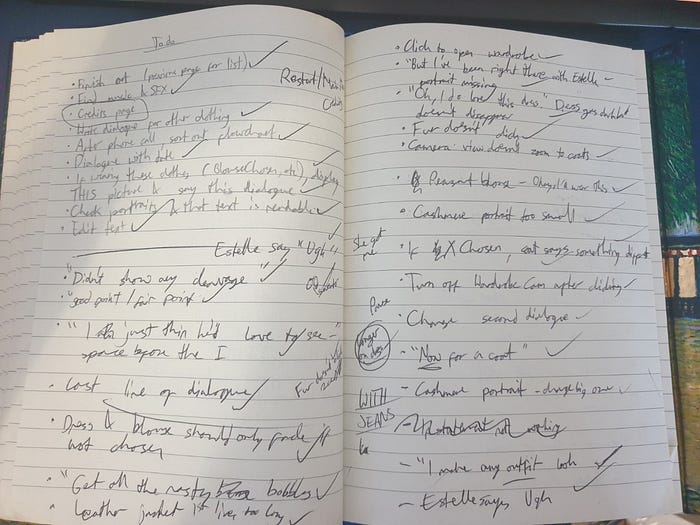 To do
• Furnish out (previous page for list)
• Find music & SFX
• Credits page
• Write dialogue for other clothing
• After phone call, sort out flowchart
• Dialogue with date
• If wearing these clothes (BlouseChosen, etc), display
THIS picture & say this dialogue
• Check portraits & that text is readable
• Edit text
Restart/
Credits
Estelle say "Ugh"
• "Didn't show any cleavage"
• "good point / fair point"
• "I just think he'd love to see -
space before the I
- Last line of dialogue
• Dress & blouse should only fade if
not chosen
• "Get all the nasty bobbles
• Leather jacket 1st line too long
• Click to open wardrobe
• "But I've been right there with Estelle -
portrait missing
• "Oh, I do love this dress." Dress
doesn't disappear
• Fur doesn't
• Camera view doesn't zoom to coats
• Peasant blouse - Okay, I'll wear this
• Cashmere portrait too small
• If X Chosen, coat says something different
• Turn off Wardrobe Cam after clicking
• Change second dialogue
- "Now for a coat"
- Cashmere portrait - change big one
WITH
JEANS
not working
- "I make any outfit look
- Estelle says Ugh
She got
me
Pause
longer
on